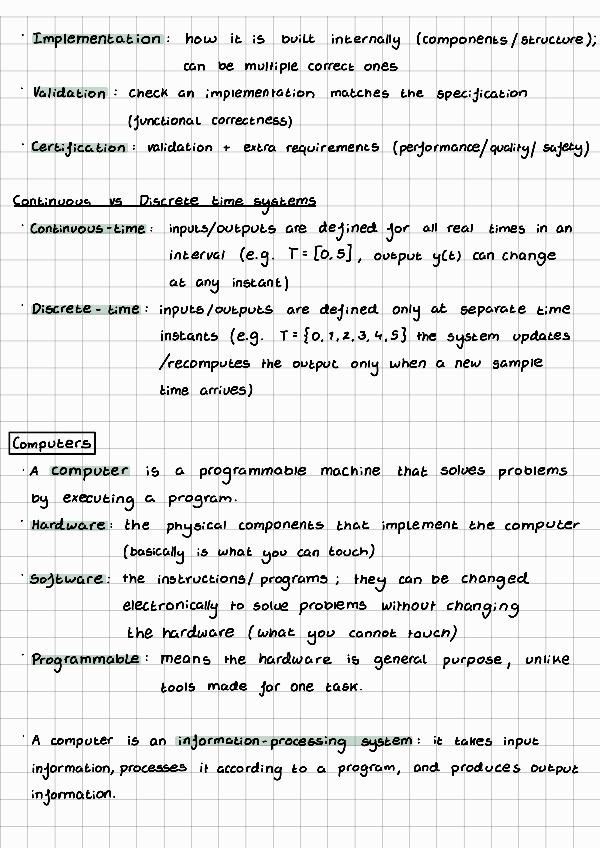 · Implementation: how it is built internally (components/structure);
can be multiple correct ones
· Validation: check an implementation matches the specification
(functional correctness)
· Certification: validation + extra requirements (performance/quality/safety)
Continuous vs Discrete time systems
· Continuous-time: inputs/outputs are defined for all real times in an
interval (e.g. T=[0,5], output y(t) can change
at any instant)
· Discrete-time: inputs/outputs are defined only at separate time
instants (e.g. T={0,1,2,3,4,5} the system updates
/recomputes the output only when a new sample
time arrives)
Computers
· A computer is a programmable machine that solves problems
by executing a program.
· Hardware: the physical components that implement the computer
(basically is what you can touch)
· Software: the instructions/programs; they can be changed
electronically to solve problems without changing
the hardware (what you cannot touch)
· Programmable: means the hardware is general purpose, unlike
tools made for one task.
· A computer is an information-processing system: it takes input
information, processes it according to a program, and produces output
information.